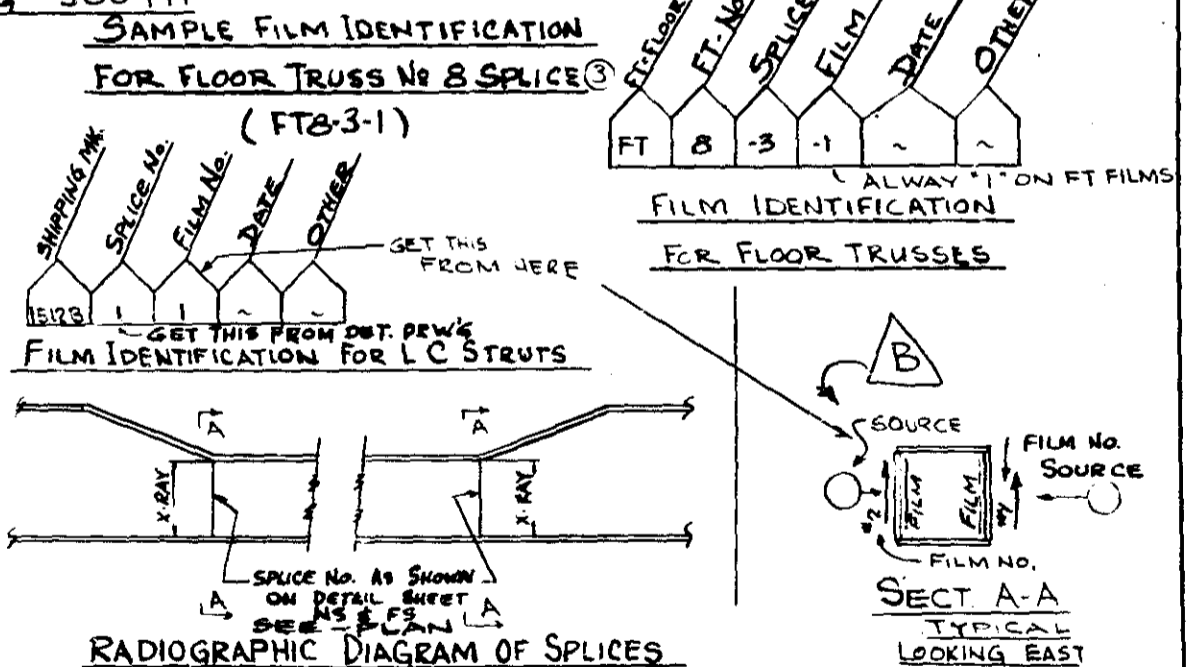 SOUTH
SAMPLE FILM IDENTIFICATION
FOR FLOOR TRUSS No 8 SPLICE ③
(FT8-3-1)
SHIPPING MK.
SPLICE No.
FILM No.
DATE
OTHER
1512B 1 1 ~ ~
GET THIS
FROM HERE
GET THIS FROM DET. DRW'G
FILM IDENTIFICATION FOR L C STRUTS
FT-FLOOR
FT-No
SPLICE
FILM
DATE
OTHER
FT 8 -3 -1 ~ ~
ALWAY "1" ON FT FILMS
FILM IDENTIFICATION
FOR FLOOR TRUSSES
A A
X-RAY
X-RAY
SPLICE No. AS SHOWN
ON DETAIL SHEET
NS & FS
SEE - PLAN
A A
RADIOGRAPHIC DIAGRAM OF SPLICES
B
SOURCE
FILM NO.
SOURCE
#2
FILM
FILM
#1
FILM NO.
SECT. A-A
TYPICAL
LOOKING EAST